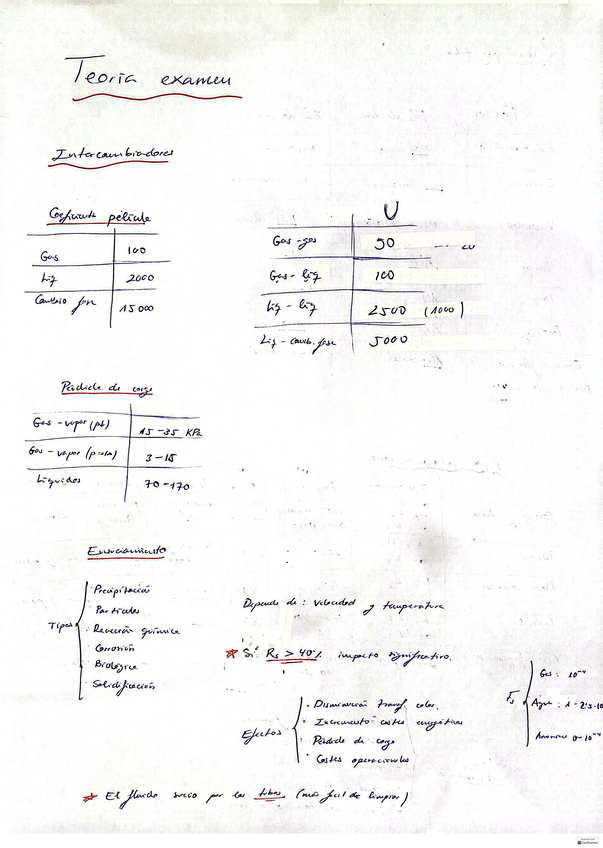 Teoría examen
Intercambiadores
Coeficiente película
Gas 100
Liq 2000
Cambio fase 15000
U
Gas-gas 50
Gas-liq 100
Liq-liq 2500 (1000)
Liq-camb. fase 5000
Pérdida de carga
Gas-vapor (pb) 15-35 KPa
Gas-vapor 3-15
Líquidos 70-170
Ensuciamiento
Tipos
Precipitación
Partículas
Reacción química
Corrosión
Biológica
Solidificación
Depende de: velocidad y temperatura
* Si Rs > 40% impacto significativo.
Efectos
· Disminución transf calor.
· Incremento costes energéticos
· Pérdida de carga
· Costes operacionales
Gas: 10⁻⁴
Agua: 1-2'3·10
0-10⁻⁴
* El fluido sucio por los tubos (más fácil de limpiar)